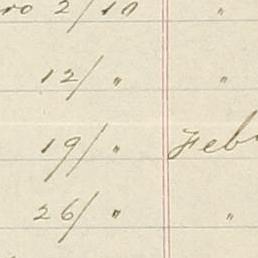 ro 2/10 "
12/ " "
19/ " Feb
26/ " "